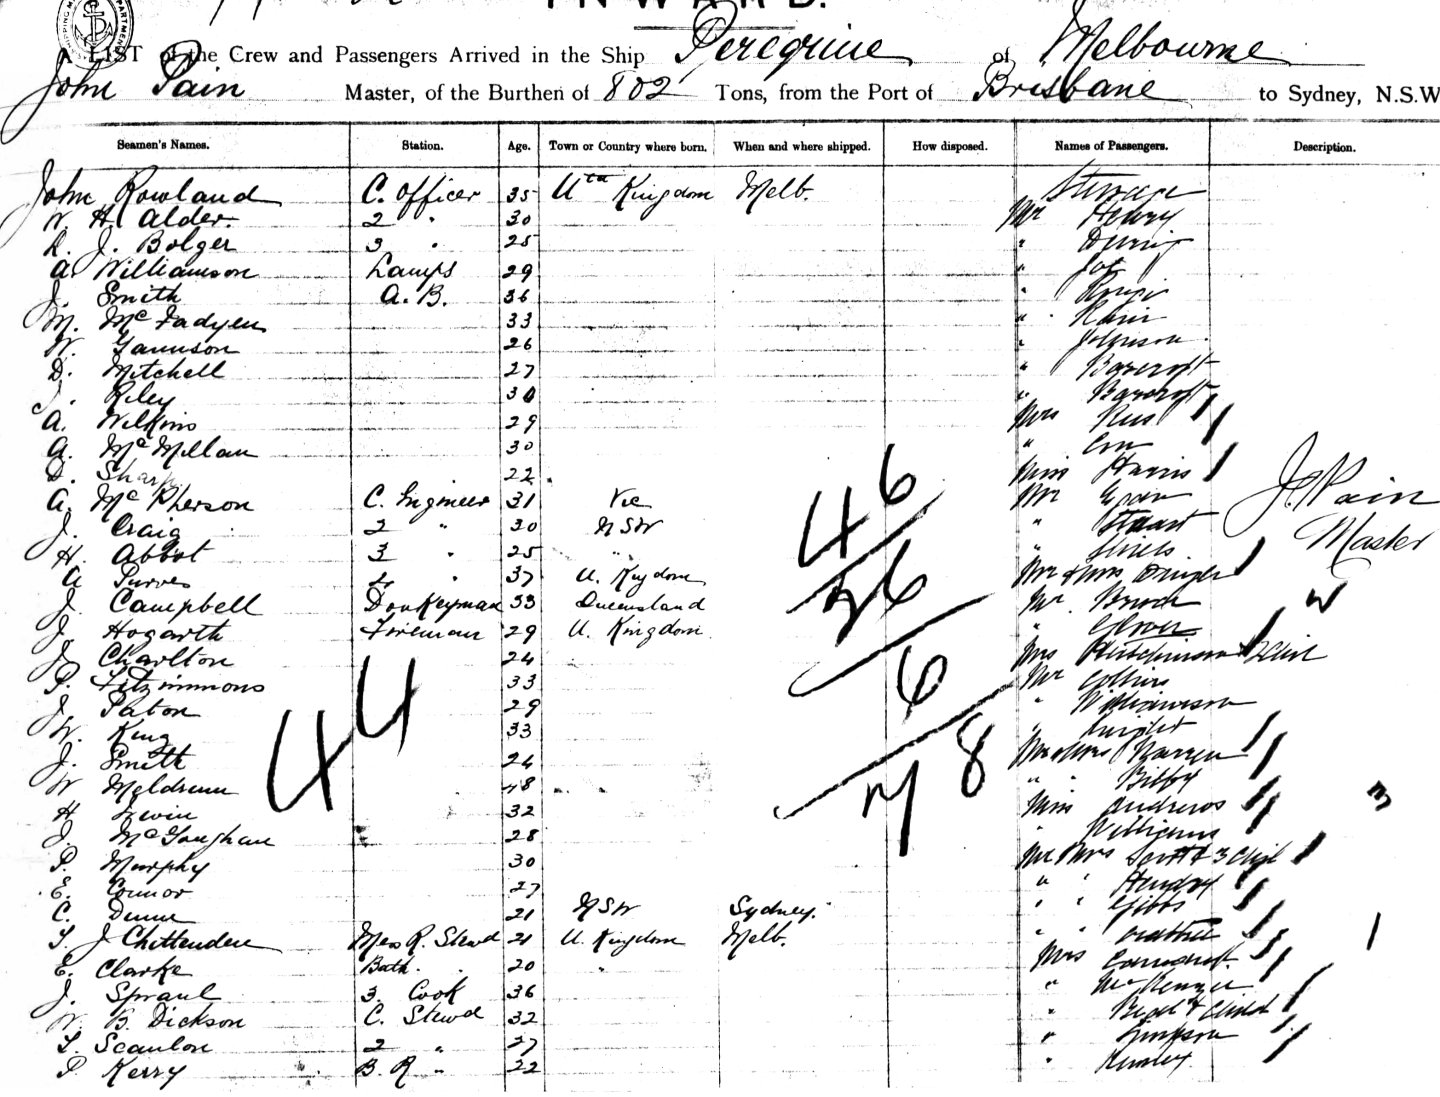 INWARD.
LIST of the Crew and Passengers Arrived in the Ship Peregrine of Melbourne
John Pain Master, of the Burthen of 802 Tons, from the Port of Brisbane to Sydney, N.S.W
Seamen's Names. Station. Age. Town or Country where born. When and where shipped. How disposed. Names of Passengers. Description.
John Rowland C. Officer 35 Utd Kingdom Melb. Steerage
W. H. Alder. 2 " 30 Mr Henry
J. Bolger 3 " 25 "
A. Williamson Lamps 29 "
J. Smith A. B. 36 "
M. McFadyen 33 "
W. 26 " Johnson
D. Mitchell 27 " Barcroft
J. Riley 30 " Barcroft
A. Wilkins 29 Mrs
A. McMillan 30 "
D. Sharp 22 Miss Harris
A. McPherson C. Engineer 31 Vic Mr
J. Craig 2 " 30 NSW " Stuart
H. Abbot 3 " 25 " "
A Purves 4 " 37 U. Kingdom Mr & Mrs
J. Campbell Donkeyman 33 Queensland Mr.
J. Hogarth Fireman 29 U. Kingdom " Glover
J. Charlton 24 Mrs Hutchinson
P. Fitzsimmons 33 Mr Collins
J. Paton 29 " Williamson
W. King 33 " Wright
J. Smith 24 Mr & Mrs Warren
W Meldrum 48 " " Bilby
H Irwin 32 Miss Andrews
J. McGaughan 28 " Williams
P. Murphy 30 Mr & Mrs Scott & 3 Chil
E. Connor 27 " " Hendry
C. Dunn 21 NSW Sydney. " " Gibbs
T. J Chittenden Mess R. Stewd 21 U. Kingdom Melb. " "
E. Clarke Bath " 20 " Mrs
J. Spraul 3. Cook 36 " McKenzie
W. B. Dickson C. Stewd 32 " & Child
T. Scanlon 2 " 27 " Simpson
P Kerry B. R " 22 "
J. Pain
Master
46
26
6
78
44
W
3
1